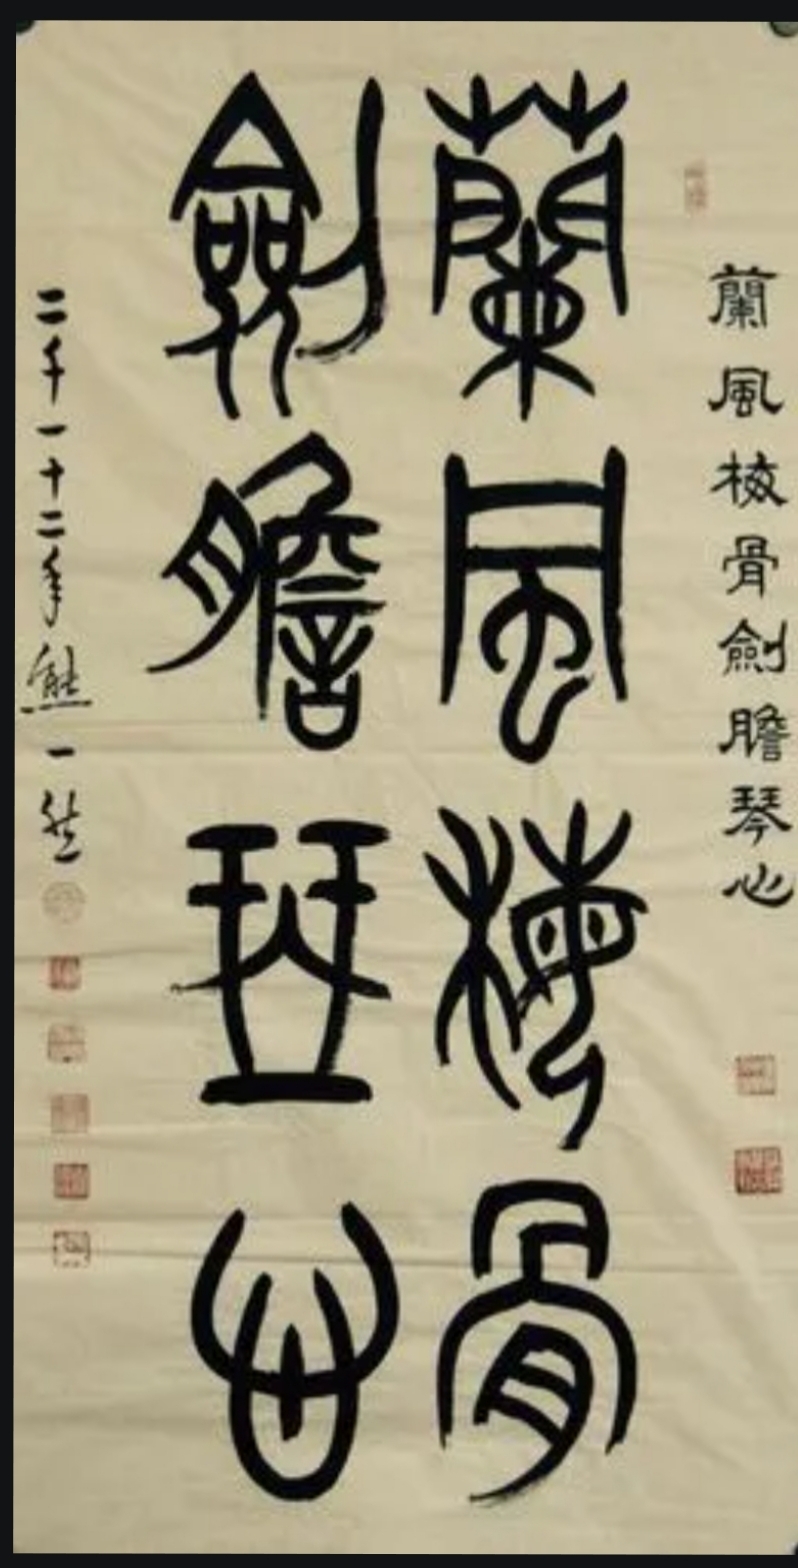 蘭風梅骨劍膽琴心
蘭風梅骨
劍膽琴心
二千一十二年熊一